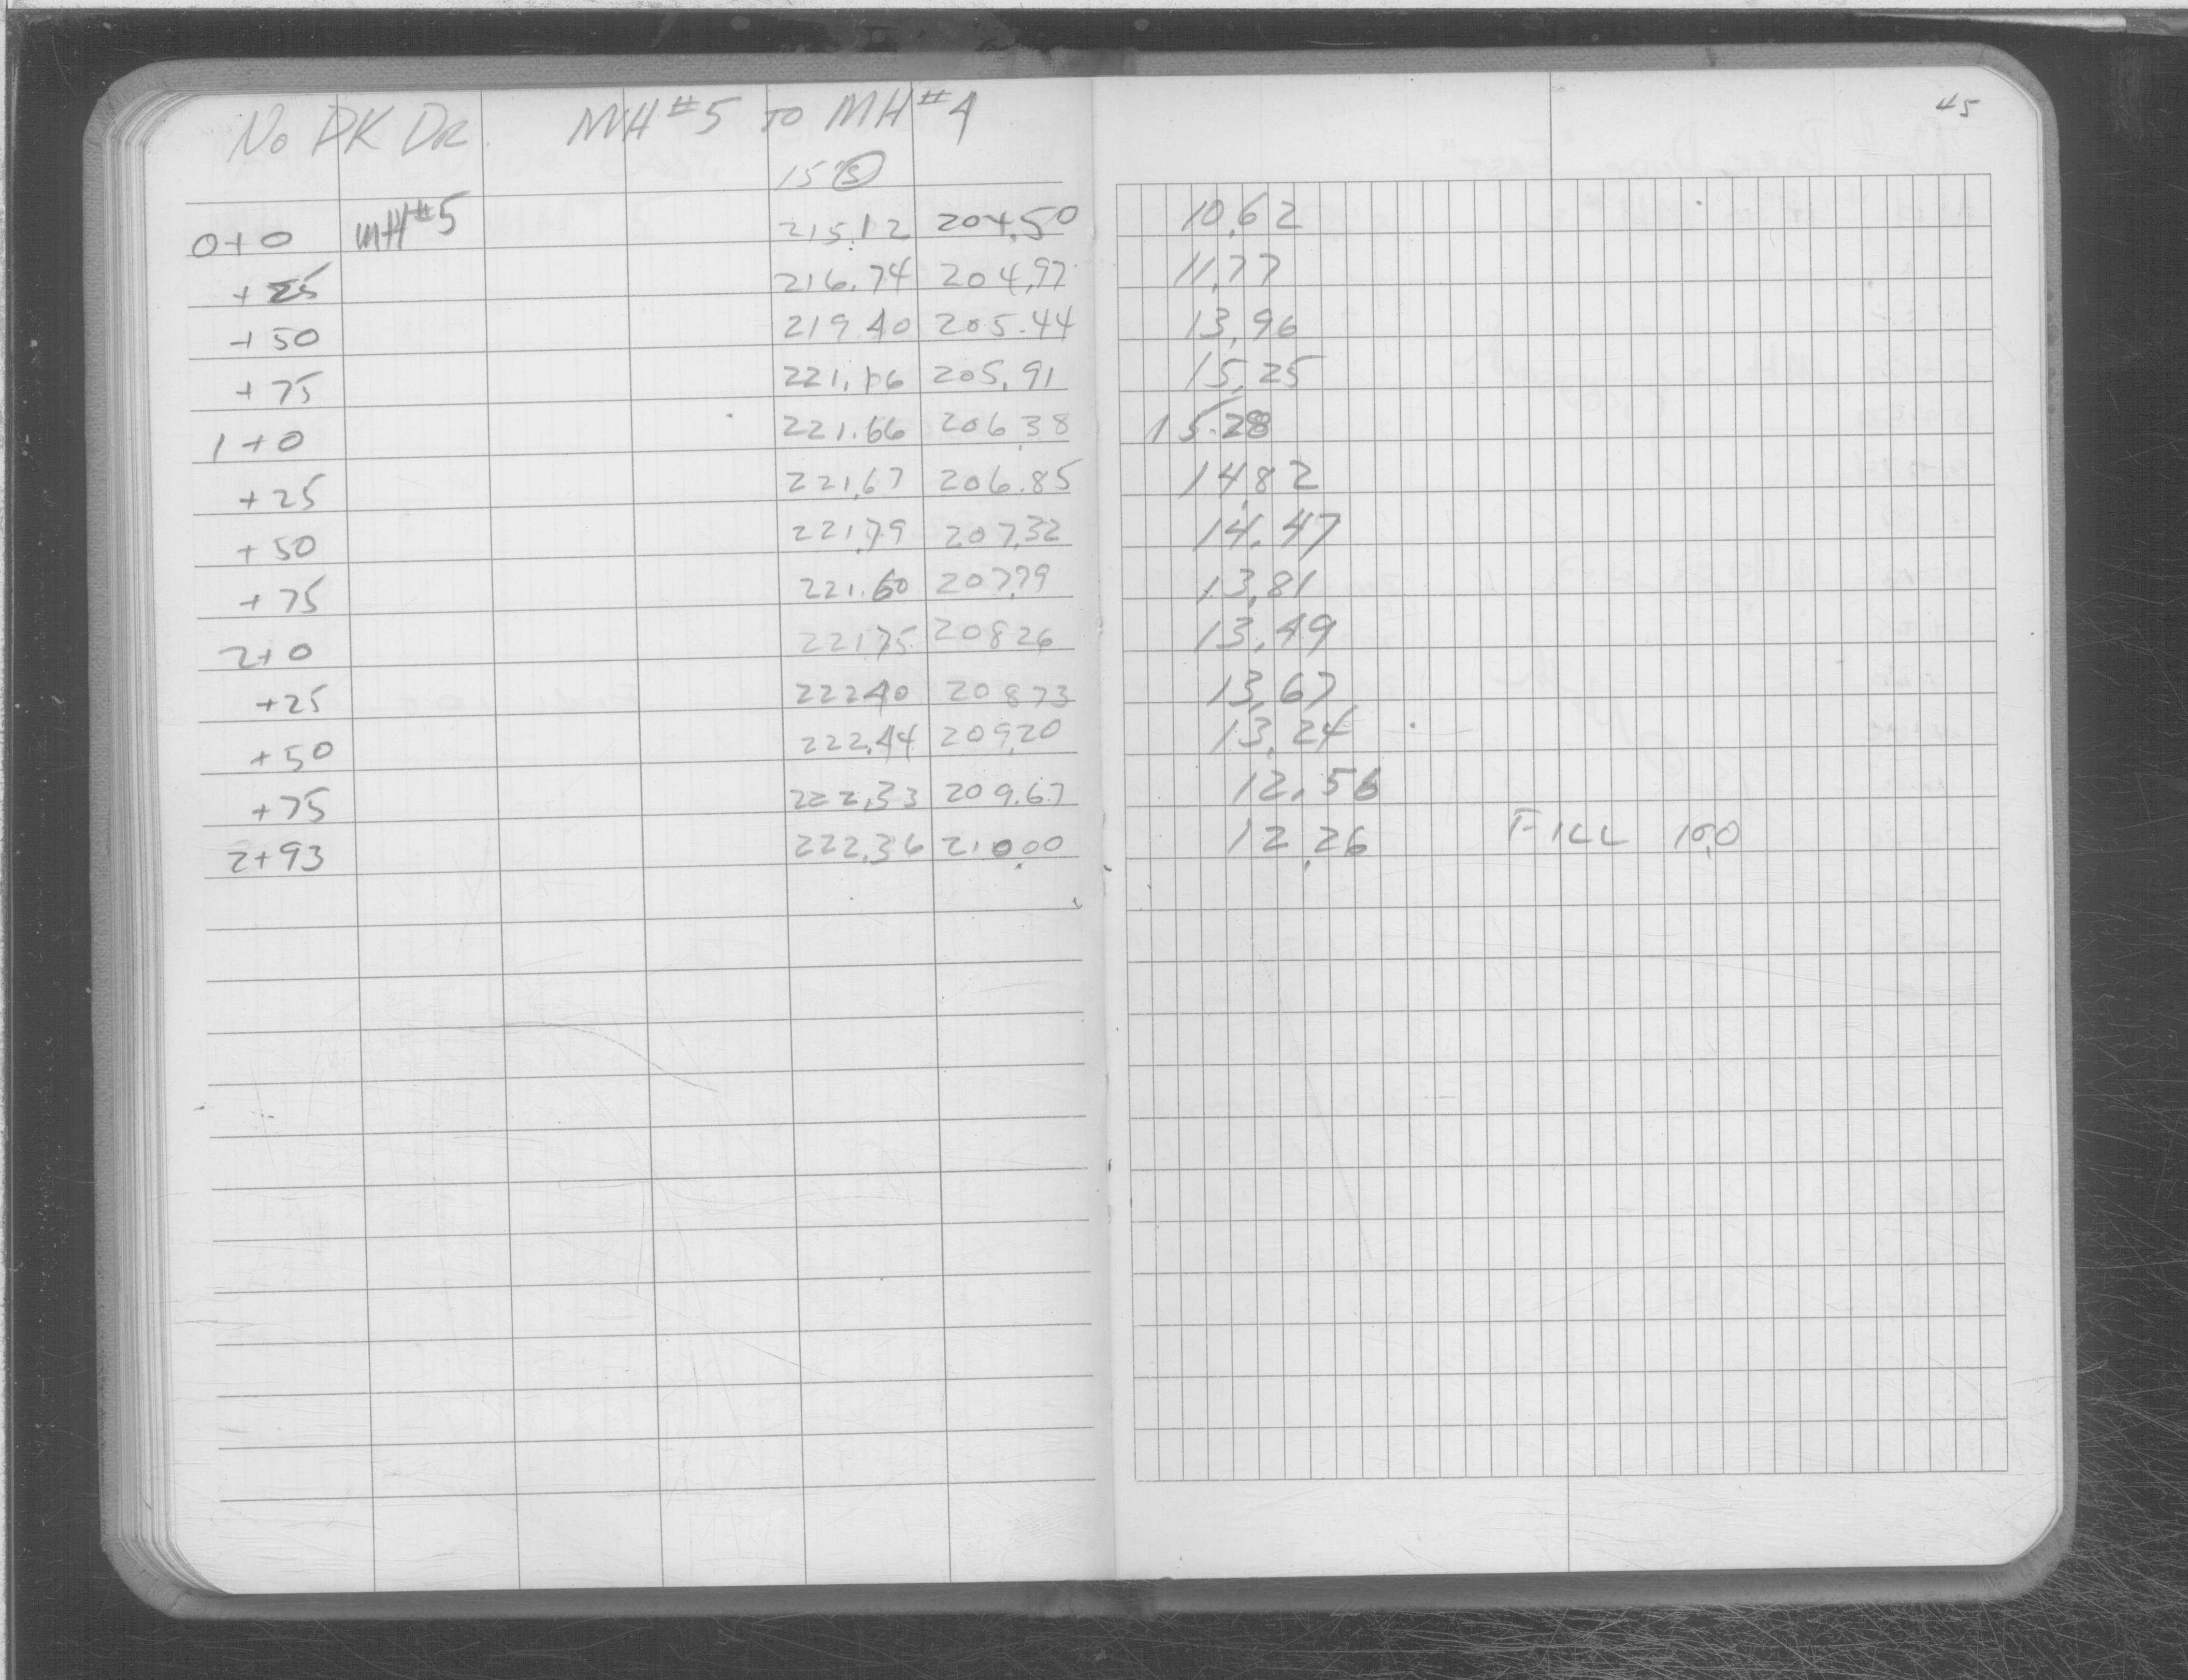 No PK DR. MH #5 TO MH #4
45
15' S
0+0 MH #5 215.12 204.50 10.62
+25 216.74 204.97 11.77
+50 219.40 205.44 13.96
+75 221.16 205.91 15.25
1+0 221.66 206.38 15.28
+25 221.67 206.85 14.82
+50 221.79 207.32 14.47
+75 221.60 207.79 13.81
2+0 221.75 208.26 13.49
+25 222.40 208.73 13.67
+50 222.44 209.20 13.24
+75 222.33 209.67 12.56
2+93 222.36 210.00 12.26 FILL 10.0